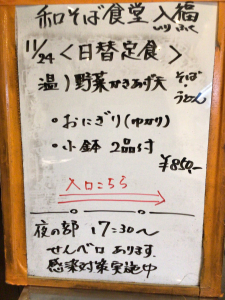 和そば食堂 入福
いり ふく
11/24 <日替定食>
温)野菜かきあげ天 そば・うどん
・おにぎり(ゆかり)
・小鉢 2品付
¥850,-
入口こちら
夜の部 17:30〜
せんべろ あります
感染対策実施中